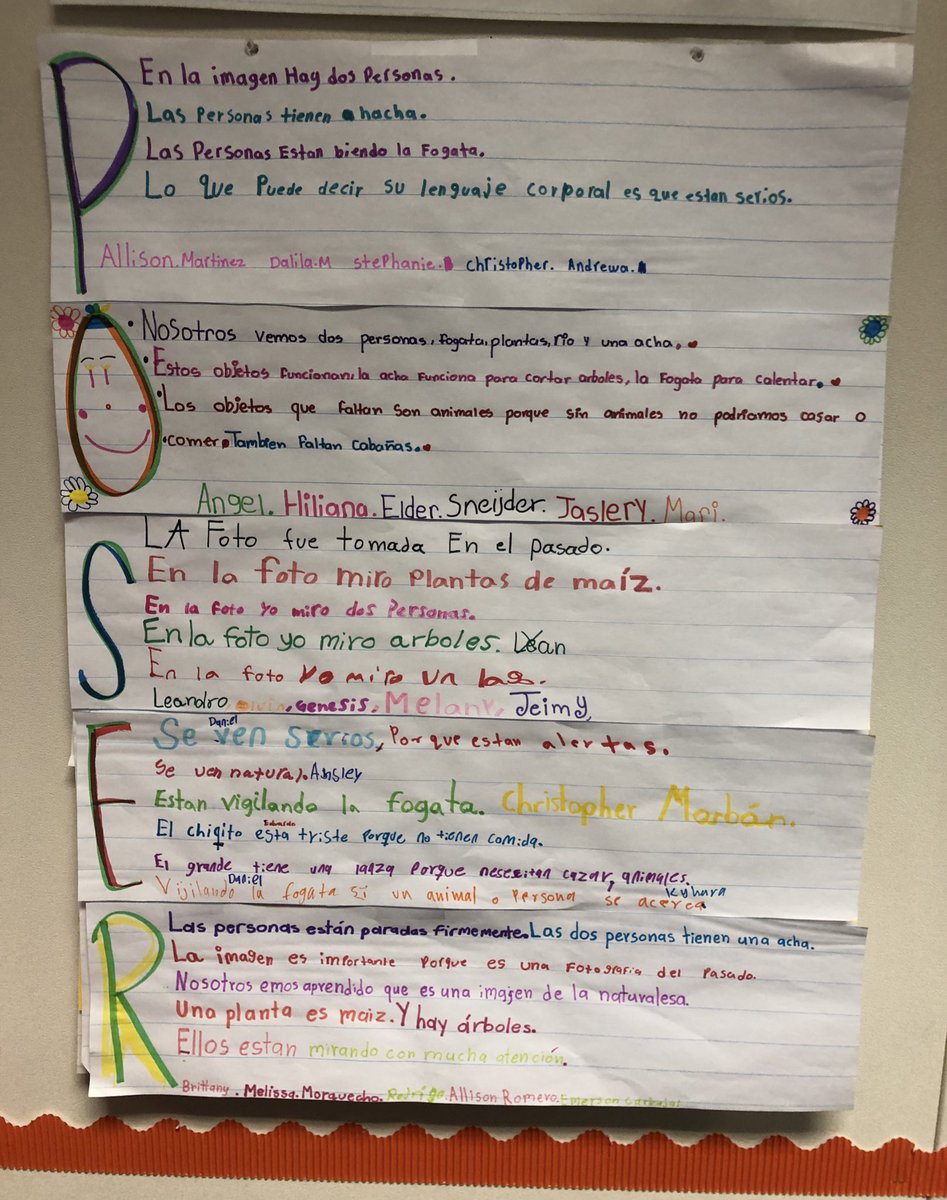 P
En la imagen Hay dos Personas.
Las Personas tienen hacha.
Las Personas Estan biendo la Fogata.
Lo Que Puede decir su lenguaje corporal es que estan serios.
Allison.Martinez Dalila.M stephanie. Christopher. Andrewa.
O
Nosotros vemos dos personas, fogata, plantas, rio y una acha.
Estos objetos funcionan: la acha funciona para cortar arboles, la fogata para calentar.
Los objetos que faltan son animales porque sin animales no podriamos casar o
comer. Tambien faltan cabañas.
Angel. Hiliana. Elder. Sneijder. Jaslery. Mari.
S
LA Foto fue tomada En el pasado.
En la foto miro plantas de maíz.
En la foto yo miro dos Personas.
En la foto yo miro arboles.
En la foto Yo miro un
Leandro, Genesis, Melany, Jeimy
E
Daniel
Se ven serios, Porque estan alertas.
Se ven natural. Ansley
Estan vigilando la fogata. Christopher Marbán.
Eduardo
El chiqito esta triste porque no tienen comida.
El grande tiene una lanza porque necesitan cazar, animales.
Daniel Kyhara
Vijilando la fogata si un animal o persona se acerca
R
Las personas están paradas firmemente. Las dos personas tienen una acha.
La imagen es importante Porque es una Fotografia del Pasado.
Nosotros emos aprendido que es una imagen de la naturalesa.
Una planta es maiz. Y hay árboles.
Ellos estan mirando con mucha atención.
Brittany. Melissa. Morquecho. Rodrigo. Allison Romero. Emerson Carbajal